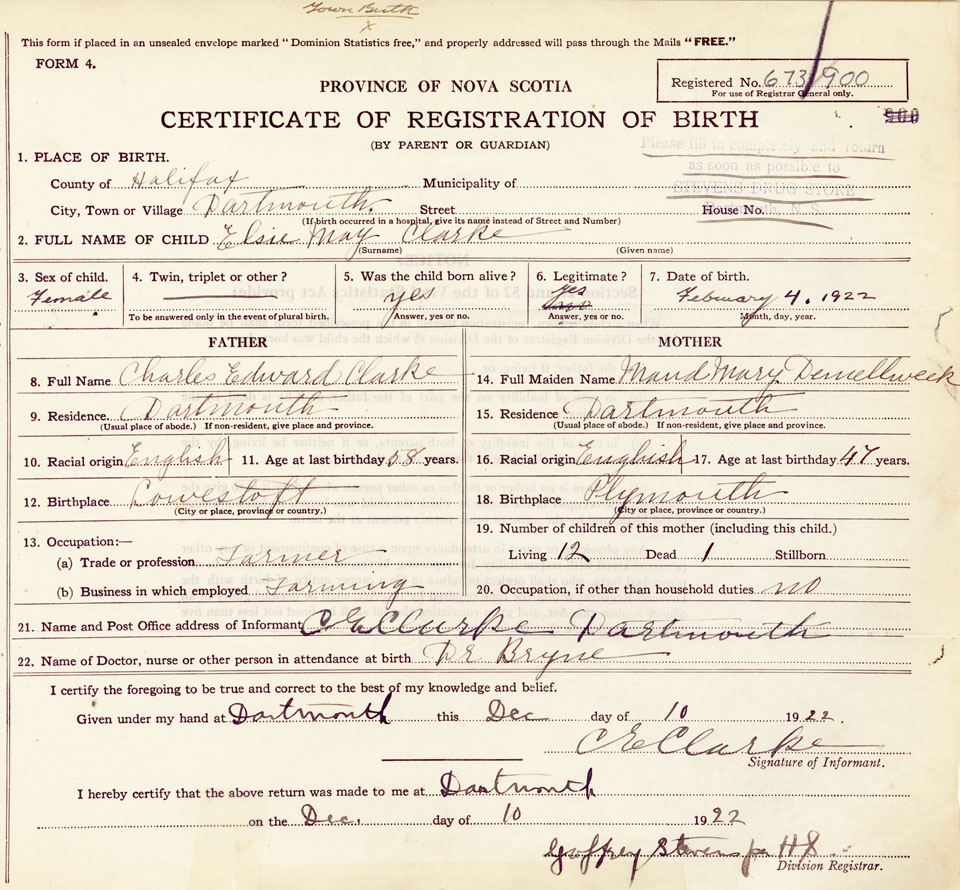 Town Birth
x
This form if placed in an unsealed envelope marked "Dominion Statistics free," and properly addressed will pass through the Mails "FREE."
FORM 4.
PROVINCE OF NOVA SCOTIA
Registered No. 673900
For use of Registrar General only.
CERTIFICATE OF REGISTRATION OF BIRTH
900
(BY PARENT OR GUARDIAN)
Please fill in completely and return
as soon as possible to
STEVENS DRUG STORE
Dartmouth, N. S.
1. PLACE OF BIRTH.
County of Halifax Municipality of
City, Town or Village Dartmouth. Street House No.
(If birth occurred in a hospital, give its name instead of Street and Number)
2. FULL NAME OF CHILD Elsie May Clarke
(Surname) (Given name)
3. Sex of child. 4. Twin, triplet or other? 5. Was the child born alive? 6. Legitimate? 7. Date of birth.
Female yes yes February 4. 1922
To be answered only in the event of plural birth. Answer, yes or no. Answer, yes or no. Month, day, year.
FATHER MOTHER
8. Full Name Charles Edward Clarke 14. Full Maiden Name Maud Mary
9. Residence. Dartmouth 15. Residence Dartmouth
(Usual place of abode.) If non-resident, give place and province. (Usual place of abode.) If non-resident, give place and province.
10. Racial origin English 11. Age at last birthday 58 years. 16. Racial origin English 17. Age at last birthday 47 years.
12. Birthplace Lowestoft 18. Birthplace Plymouth
(City or place, province or country.) (City or place, province or country.)
13. Occupation:— 19. Number of children of this mother (including this child.)
(a) Trade or profession Farmer Living 12 Dead 1 Stillborn
(b) Business in which employed Farming 20. Occupation, if other than household duties no
21. Name and Post Office address of Informant C E Clarke Dartmouth
22. Name of Doctor, nurse or other person in attendance at birth Dr Bryne
I certify the foregoing to be true and correct to the best of my knowledge and belief.
Given under my hand at Dartmouth this Dec day of 10 1922.
C E Clarke
Signature of Informant.
I hereby certify that the above return was made to me at Dartmouth
on the Dec. day of 10 1922
Geoffrey Stevens per H S
Division Registrar.